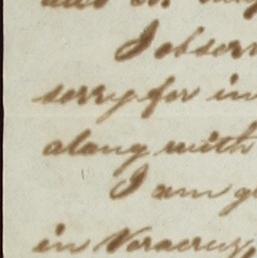 I observ
sorry for in
along with
I am g
in Veracruz,